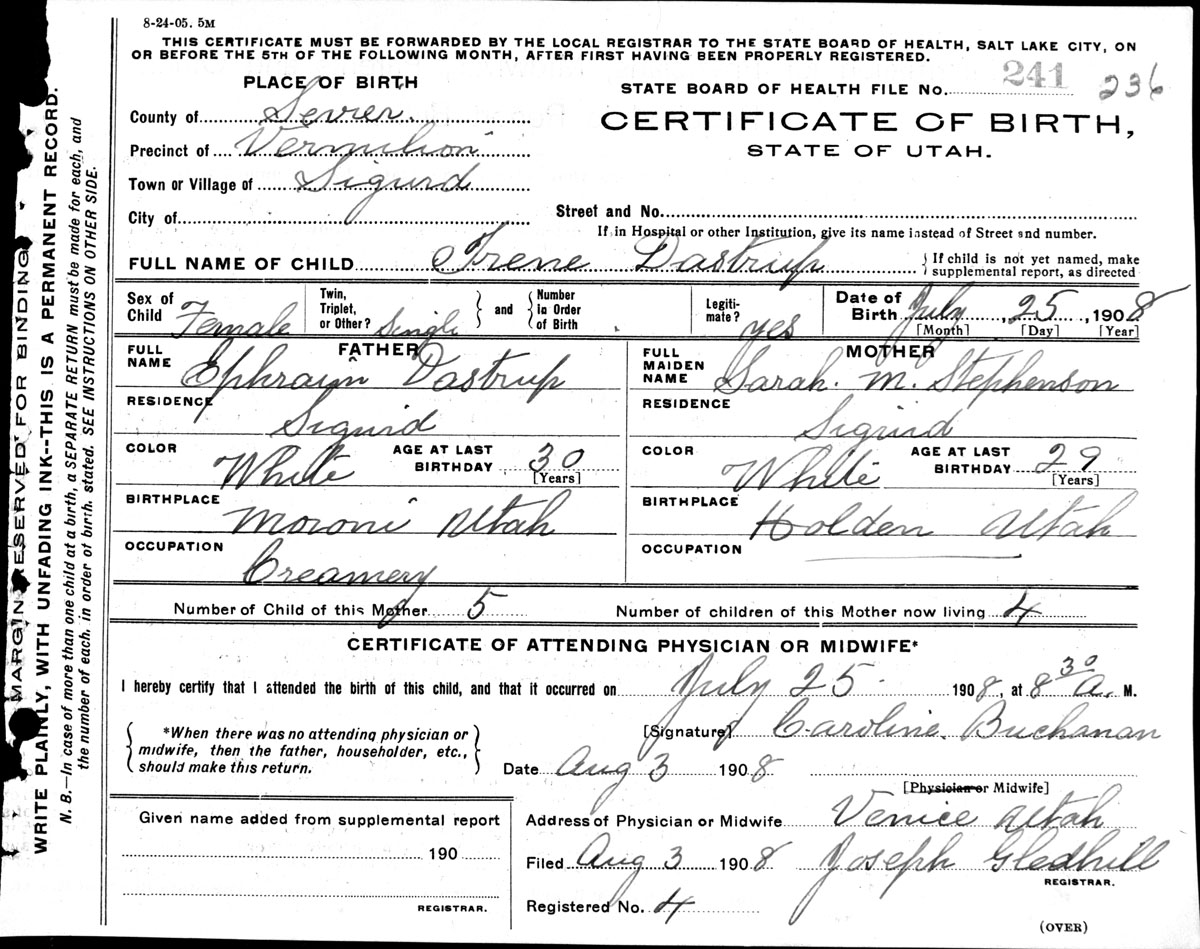 8-24-05. 5M
THIS CERTIFICATE MUST BE FORWARDED BY THE LOCAL REGISTRAR TO THE STATE BOARD OF HEALTH, SALT LAKE CITY, ON
OR BEFORE THE 5TH OF THE FOLLOWING MONTH, AFTER FIRST HAVING BEEN PROPERLY REGISTERED.
PLACE OF BIRTH
STATE BOARD OF HEALTH FILE No. 241 236
County of Sevier.
CERTIFICATE OF BIRTH,
Precinct of Vermilion
STATE OF UTAH.
Town or Village of Sigurd
City of
Street and No.
If in Hospital or other Institution, give its name instead of Street and number.
FULL NAME OF CHILD Irene Dastrup { If child is not yet named, make
supplemental report, as directed
Sex of Child Female
Twin, Triplet, or Other? Single } and { Number in Order of Birth
Legiti- mate? yes
Date of Birth July, 25, 1908
[Month] [Day] [Year]
FATHER
FULL NAME Ephraim Dastrup
RESIDENCE
Sigurd
COLOR White AGE AT LAST BIRTHDAY 30
[Years]
BIRTHPLACE
Moroni Utah
OCCUPATION
Creamery
MOTHER
FULL MAIDEN NAME Sarah. M. Stephenson
RESIDENCE
Sigurd
COLOR White AGE AT LAST BIRTHDAY 29
[Years]
BIRTHPLACE
Holden Utah
OCCUPATION
Number of Child of this Mother 5 Number of children of this Mother now living 4
CERTIFICATE OF ATTENDING PHYSICIAN OR MIDWIFE*
I hereby certify that I attended the birth of this child, and that it occurred on July 25 1908, at 8 30 A. M.
*When there was no attending physician or
midwife, then the father, householder, etc.,
should make this return.
[Signature] Caroline. Buchanan
Date Aug 3 1908
[Physician or Midwife]
Given name added from supplemental report
190
REGISTRAR.
Address of Physician or Midwife Venice Utah
Filed Aug 3 1908 Joseph Gledhill
REGISTRAR.
Registered No. 4
(OVER)
MARGIN RESERVED FOR BINDING
WRITE PLAINLY, WITH UNFADING INK--THIS IS A PERMANENT RECORD.
N. B.—In case of more than one child at a birth, a SEPARATE RETURN must be made for each, and
the number of each, in order of birth, stated. SEE INSTRUCTIONS ON OTHER SIDE.